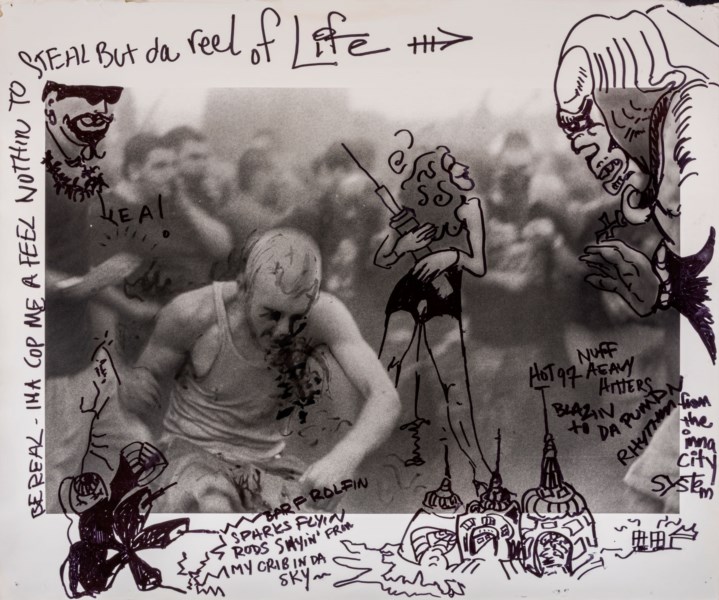 BE REAL - IMA COP ME A FEEL NOTHIN TO
STEAL BUT da reel of Life
YEA!
HOT 97 NUFF
HEAVY
HITTERS
BLAZIN
to DA PUMPIN
RHYTHM
from
the
inna
City
SYSTEM
BARF ROLFIN
SPARKS FLYIN
RODS SWYIN' FROM
MY CRIB IN DA
SKY~